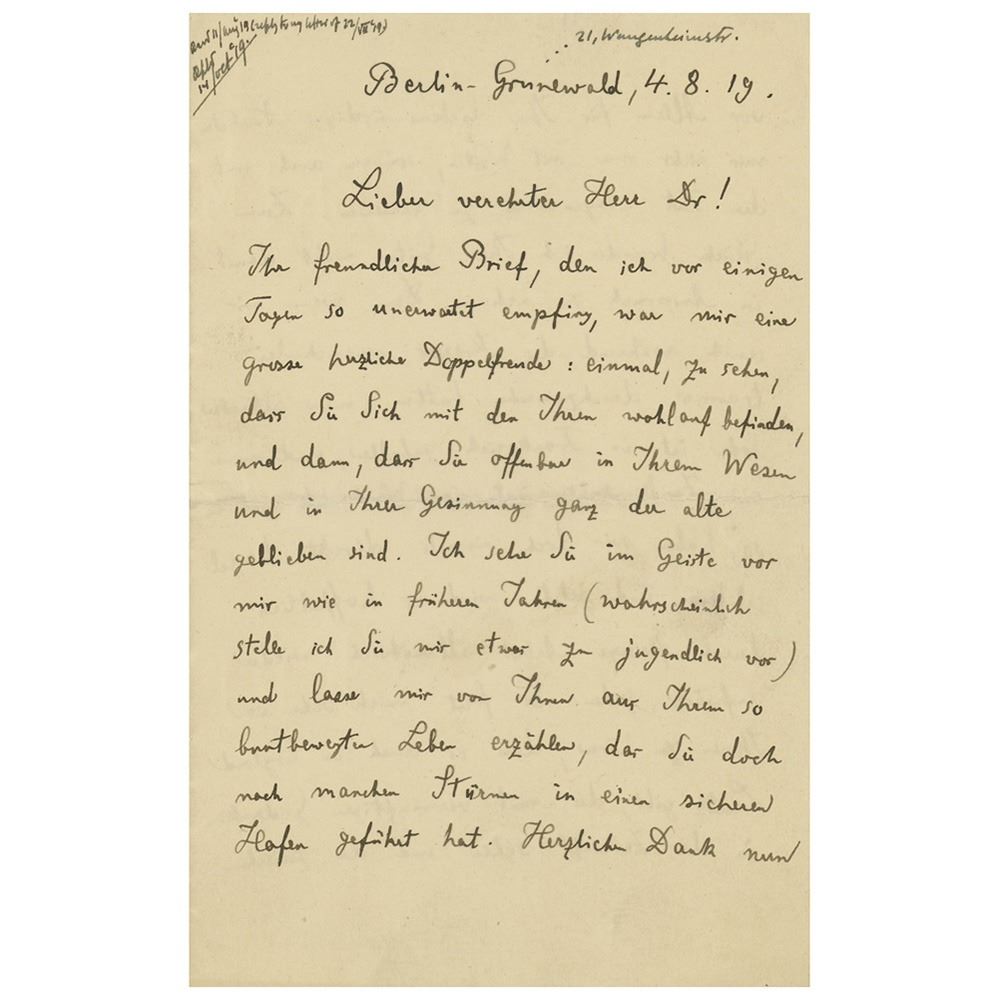 Recd 11/Aug 19 (reply to my letter of 22/VII 19)
Repld
14/Oct 19.
21, Wangenheimstr.
Berlin-Grunewald, 4. 8. 19.
Lieber verehrter Herr Dr!
Ihr freundlicher Brief, den ich vor einigen
Tagen so unerwartet empfing, war mir eine
grosse herzliche Doppelfreude: einmal, zu sehen,
dass Sie Sich mit den Ihren wohlauf befinden,
und dann, dass Sie offenbar in Ihrem Wesen
und in Ihrer Gesinnung ganz der alte
geblieben sind. Ich sehe Sie im Geiste vor
mir wie in früheren Jahren (wahrscheinlich
stelle ich Sie mir etwas zu jugendlich vor)
und lasse mir von Ihnen aus Ihrem so
buntbewegten Leben erzählen, das Sie doch
nach manchen Stürmen in einen sicheren
Hafen geführt hat. Herzlichen Dank nun